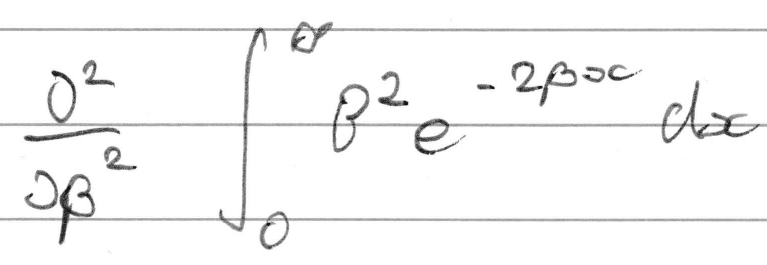 \frac{\partial^2}{\partial \beta^2} \int_0^\infty \beta^2 e^{-2\beta x} dx